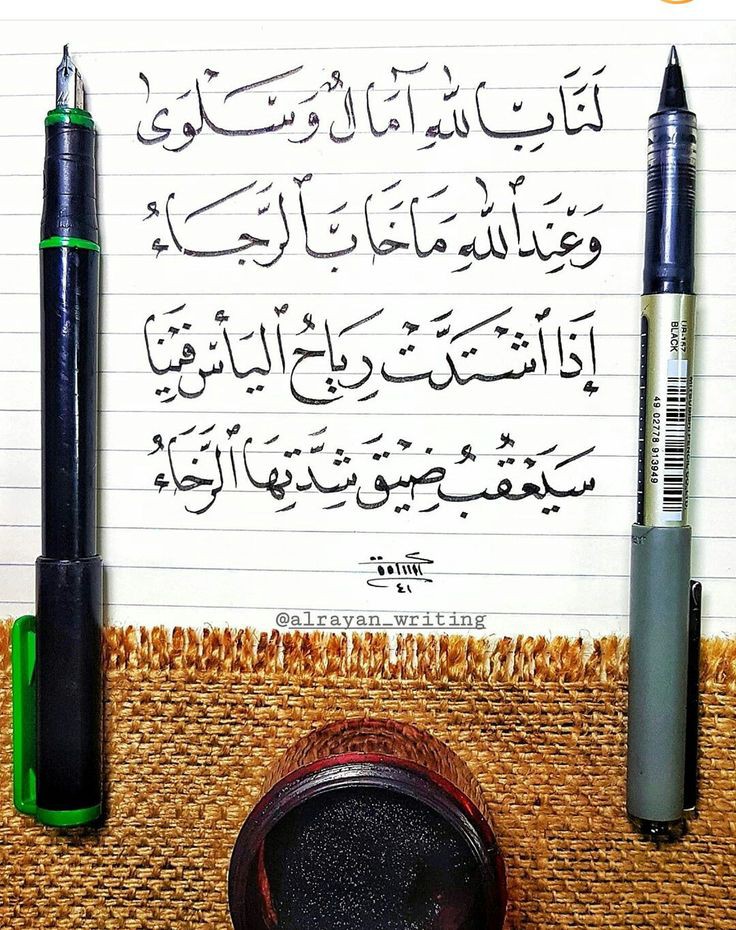 لَنَا بِاللهِ آمَالٌ وَسَلْوَى
وَعِنْدَ ٱللهِ مَا خَابَ ٱلرَّجَاءُ
إِذَا ٱشْتَدَّتْ رِيَاحُ ٱليَأْسِ فِيْنَا
سَيَعْقُبُ ضِيْقَ شِدَّتِهَا ٱلرَّخَاءُ
٤١
@alrayan_writing
UB-157
BLACK
49 02778 913949